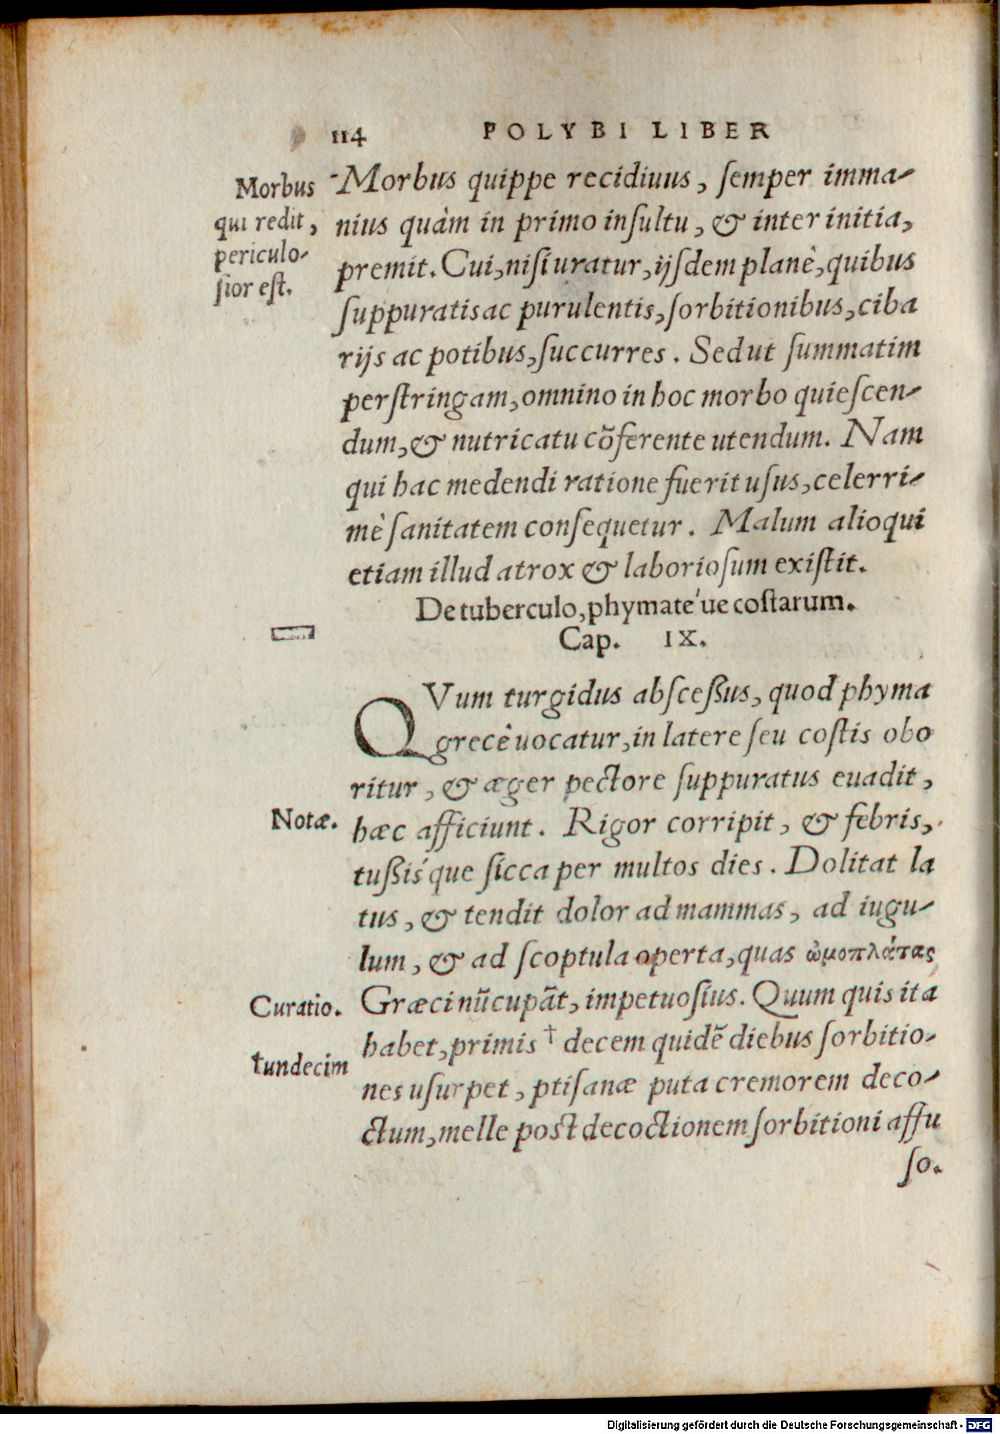 114 POLYBI LIBER
Morbus
qui redit,
periculo-
sior est.
Morbus quippe recidiuus, semper imma-
nius quàm in primo insultu, & inter initia,
premit. Cui, nisi uratur, ijsdem planè, quibus
suppuratis ac purulentis, sorbitionibus, ciba
rijs ac potibus, succurres. Sed ut summatim
perstringam, omnino in hoc morbo quiescen-
dum, & nutricatu cõferente utendum. Nam
qui hac medendi ratione fuerit usus, celerri-
mè sanitatem consequetur. Malum alioqui
etiam illud atrox & laboriosum existit.
De tuberculo, phymate'ue costarum.
Cap. IX.
QVum turgidus abscessus, quod phyma
grecè uocatur, in latere seu costis obo
ritur, & æger pectore suppuratus euadit,
Notæ.
hæc afficiunt. Rigor corripit, & febris,
tussis'que sicca per multos dies. Dolitat la
tus, & tendit dolor ad mammas, ad iugu-
lum, & ad scoptula operta, quas ὠμοπλάτας
Curatio.
Græci nũcupãt, impetuosius. Quum quis ita
habet, primis † decem quidẽ diebus sorbitio-
†undecim
nes usurpet, ptisanæ puta cremorem deco-
ctum, melle post decoctionem sorbitioni affu
so.
Digitalisierung gefördert durch die Deutsche Forschungsgemeinschaft - DFG